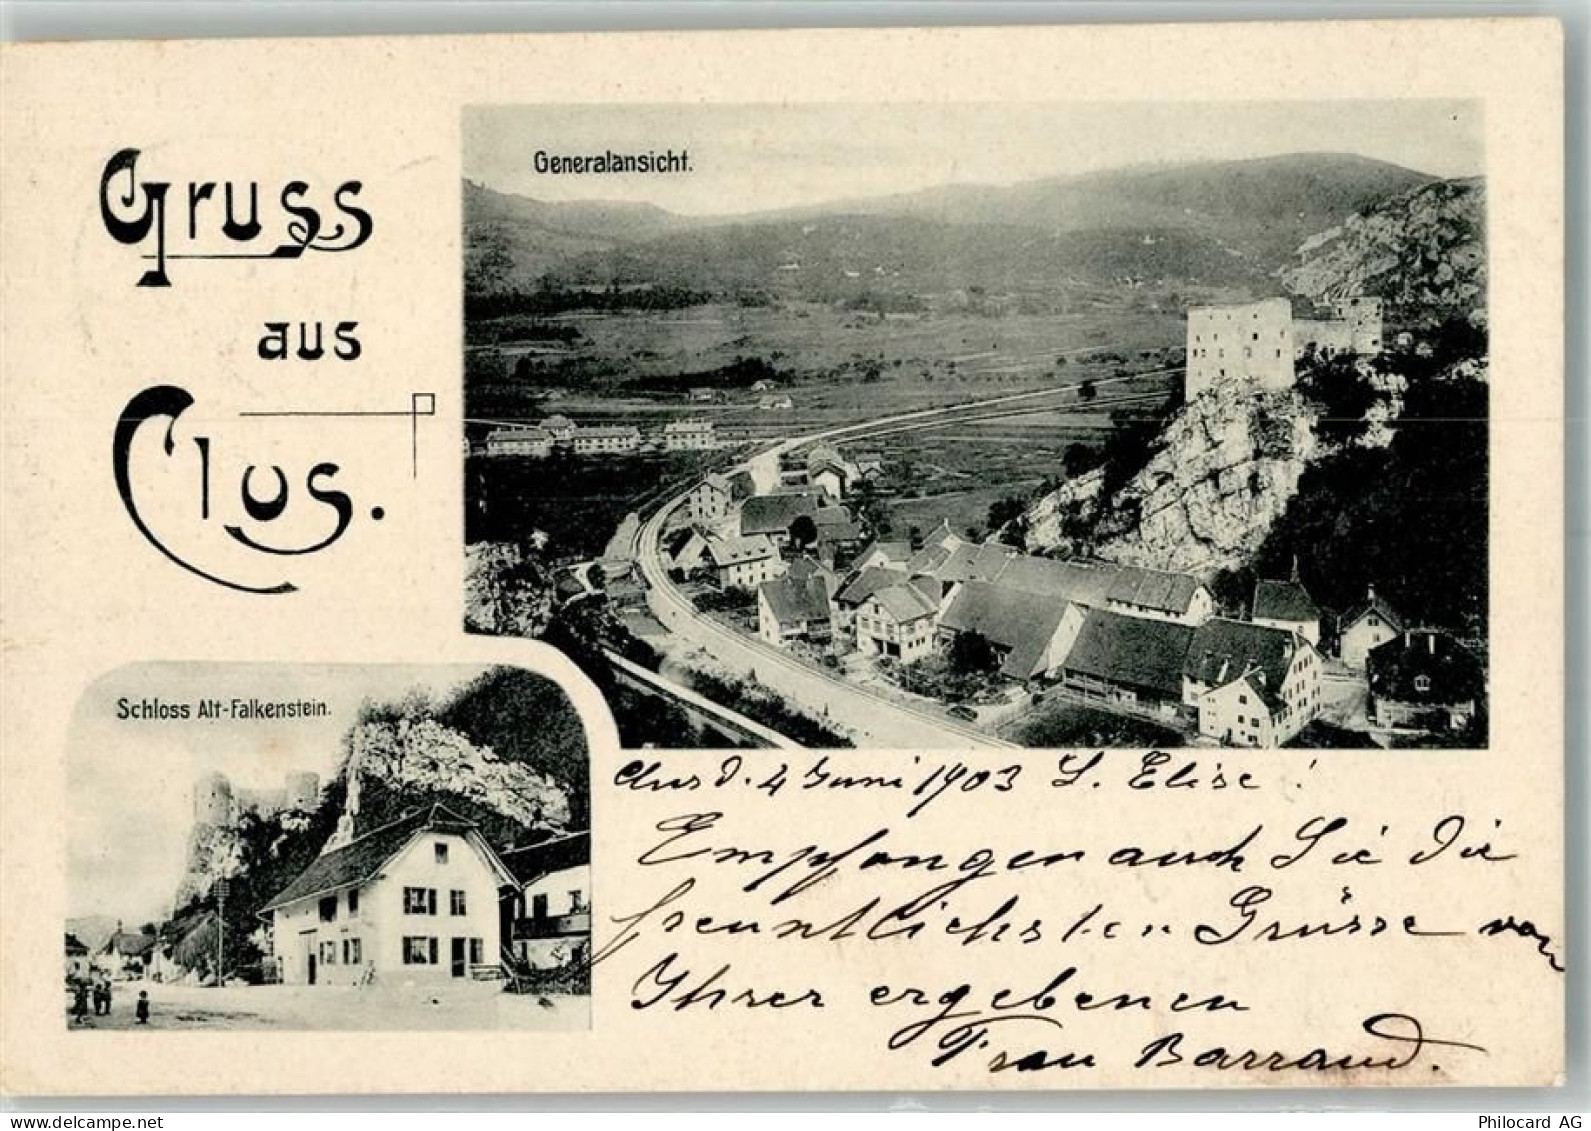 Gruss
aus
Clus.
Generalansicht.
Schloss Alt-Falkenstein.
Clus d. 4 Juni 1903 L. Elise!
Empfangen auch Sie die
freuntlichsten Grüsse von
Ihrer ergebenen
Frau Barraud.
delcampe.net
Philocard AG